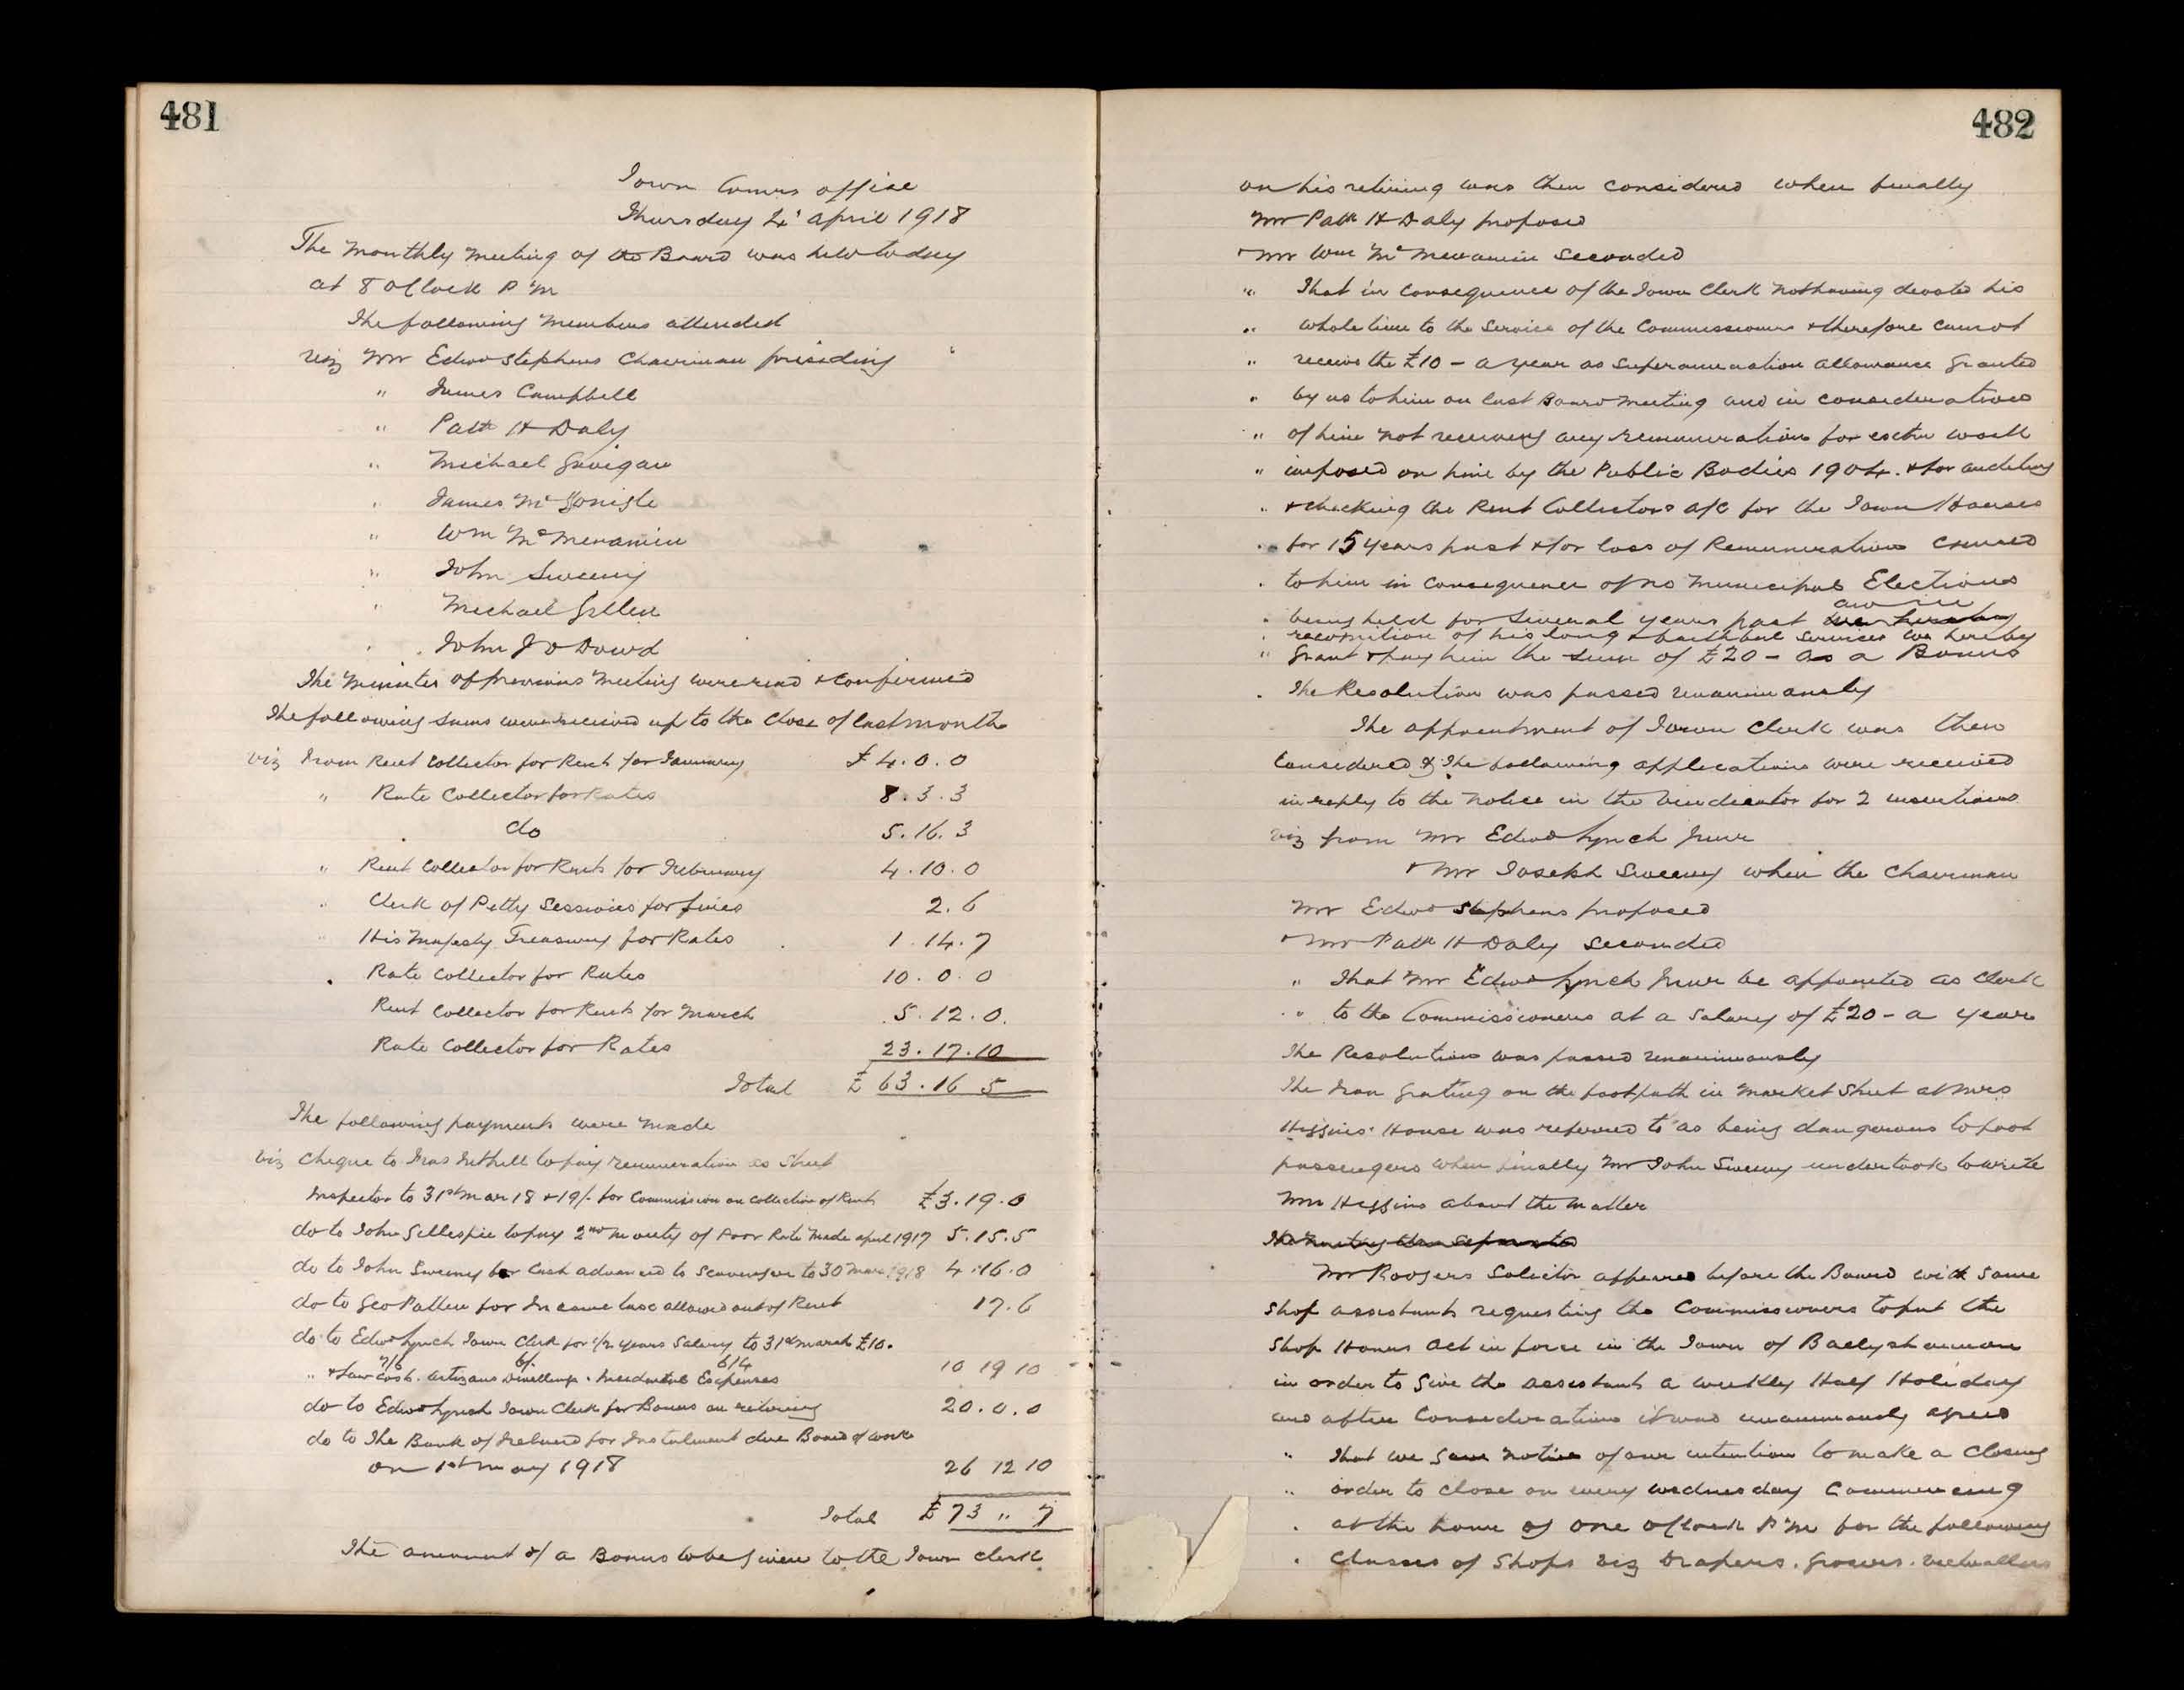 481
Town Comrs office
Thursday 4' April 1918
The Monthly Meeting of the Board was held today
at 8 OClock P M
The following Members attended
viz Mr Edwd Stephens Chairman presiding
" James Campbell
" Patk H Daly
" Michael Grimes
" James McGonigle
" Wm McMenamin
" John Sweeny
" Michael Gillen
" John J O Dowd
The Minutes of previous Meeting were read & confirmed
The following sums were received up to the Close of last month
viz From Rent Collector for Rent for January £4.0.0
" Rate Collector for Rates 8.3.3
do 5.16.3
" Rent Collector for Rents for February 4.10.0
" Clerk of Petty Sessions for fines 2.6
" His Majesty Treasury for Rates 1.14.7
Rate Collector for Rates 10.0.0
Rent Collector for Rents for March 5.12.0
Rate Collector for Rates 23.17.10
Total £63.16 5
The following payments were made
viz Cheque to to pay remuneration as Street
Inspector to 31st Mar 18 & 19/- for Commission on Collection of Rents £3.19.0
do to John Gillespie to pay 2nd Moiety of Poor Rate Made April 1917 5.15.5
do to John Sweeny for Cash advanced to Scavenger to 30 Mar 1918 4.16.0
do to Geo Patten for Income tax allowed out of Rent 17.6
do to Edwd Lynch Town Clerk for 1/2 years Salary to 31st March £10.
7/6 6/- 6/4
" & Law Cost. Artizans Dwellings. Incidental Expenses 10 19 10
do to Edwd Lynch Town Clerk for Bonus on retiring 20.0.0
do to The Bank of Ireland for Instalment due Board of Works
on 1st May 1918 26 12 10
Total £73 " 7
The amount of a Bonus to be given to the Town Clerk
482
on his retiring was then considered when finally
Mr Patk H Daly proposed
& Mr Wm McMenamin Seconded
" That in consequence of the Town Clerk not having devoted his
" whole time to the Service of the Commissioners & therefore cannot
" receive the £10 - a year as Superannuation allowance Granted
" by us to him on last Board Meeting and in consideration
" of him not receiving any remuneration for extra work
" imposed on him by the Public Bodies 1904. & for auditing
" & checking the Rent Collectors a/c for the Town Houses
" for 15 years past & for loss of Remuneration Caused
" to him in Consequence of no Municipal Elections
and in
" being held for Several years past we hereby
" recognition of his long & faithful services we hereby
" Grant & pay him the sum of £20 - as a Bonus
. The Resolution was passed unanimously
The appointment of Town Clerk was then
Considered & The following applications were received
in reply to the Notice in the Vindicator for 2 insertions
viz from Mr Edwd Lynch Junr
& Mr Joseph Sweeny when the Chairman
Mr Edwd Stephens proposed
& Mr Patk H Daly Seconded
" That Mr Edwd Lynch Junr be appointed as Clerk
" to the Commissioners at a Salary of £20 - a year
The Resolution was passed unanimously
The Iron Grating on the footpath in Market Street at Mrs
Higgins' House was referred to as being dangerous to foot
passengers when finally Mr John Sweeny undertook to write
Mrs Higgins about the Matter
The Meeting then Separated
Mr Rodgers Solicitor appeared before the Board with some
Shop assistants requesting the Commissioners to put the
Shop Hours Act in force in the Town of Ballyshannon
in order to Give the assistants a weekly Half Holiday
and after Consideration it was unanimously agreed
" That we Gave Notice of our intention to make a Closing
" order to close on every wednesday Commencing
" at the hour of one oClock P M for the following
" Classes of Shops viz Drapers. Grocers. Victuallers